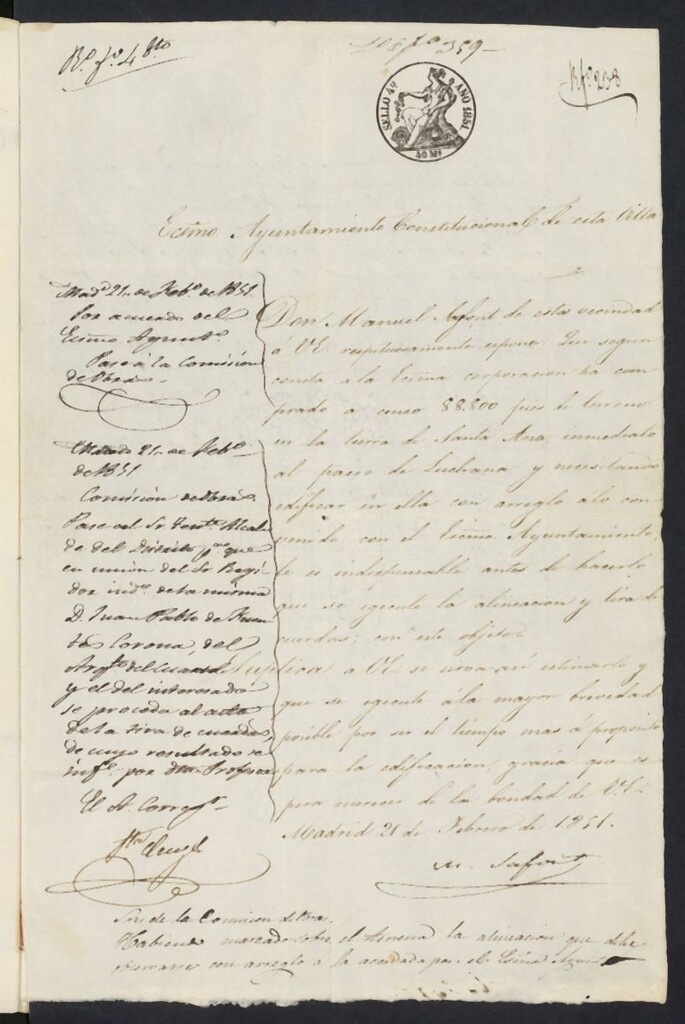 Rº fº 4 8to
fº 359
Rfº 238
SELLO 4º AÑO 1851
40 Ms
Ecsmo Ayuntamiento Constitucional de esta Villa
Madº 21 de Febº de 1851.
Por acuerdo del
Ecsmo Ayuntº
Pase à la Comision
de Obras
Madrid 21 de Febº
de 1851
Comision de Obras
Pase al Sr Tente Alcal
de del Distrito pª que
en union del Sr Regi
dor indº de la misma
D. Juan Pablo de Fuen
tes Corona, del
Arqto del Cuartel
y el del interesado
se proceda al acto
de la tira de cuerdas,
de cuyo resultado se
infe por dho Profesor
El A. Corregr
Don Manuel Safont de esta vecindad
á VE respetuosamente espone: Que segun
consta a la Ecsma corporacion ha com
prado a censo 88.800 pies de terreno
en la tierra de Santa Ana, inmediato
al paseo de Luchana y necesitando
edificar en ella con arreglo alo con
venido con el Ecsmo Ayuntamiento,
le es indispensable antes de hacerlo
que se egecute la alineacion y tira de
cuerdas; con este objeto
Suplica a VE se sirva asi estimarlo y
que se egecute á la mayor brevedad
posible por ser el tiempo mas á proposito
para la edificacion, gracia que es
pera merecer de la bondad de VE.
Madrid 21 de Febrero de 1851.
M. Safont
Sres de la Comision de Obras.
Habiendo marcado sobre el terreno la alineacion que debe
observarse con arreglo á la acordada por el Ecsmo Ayunto